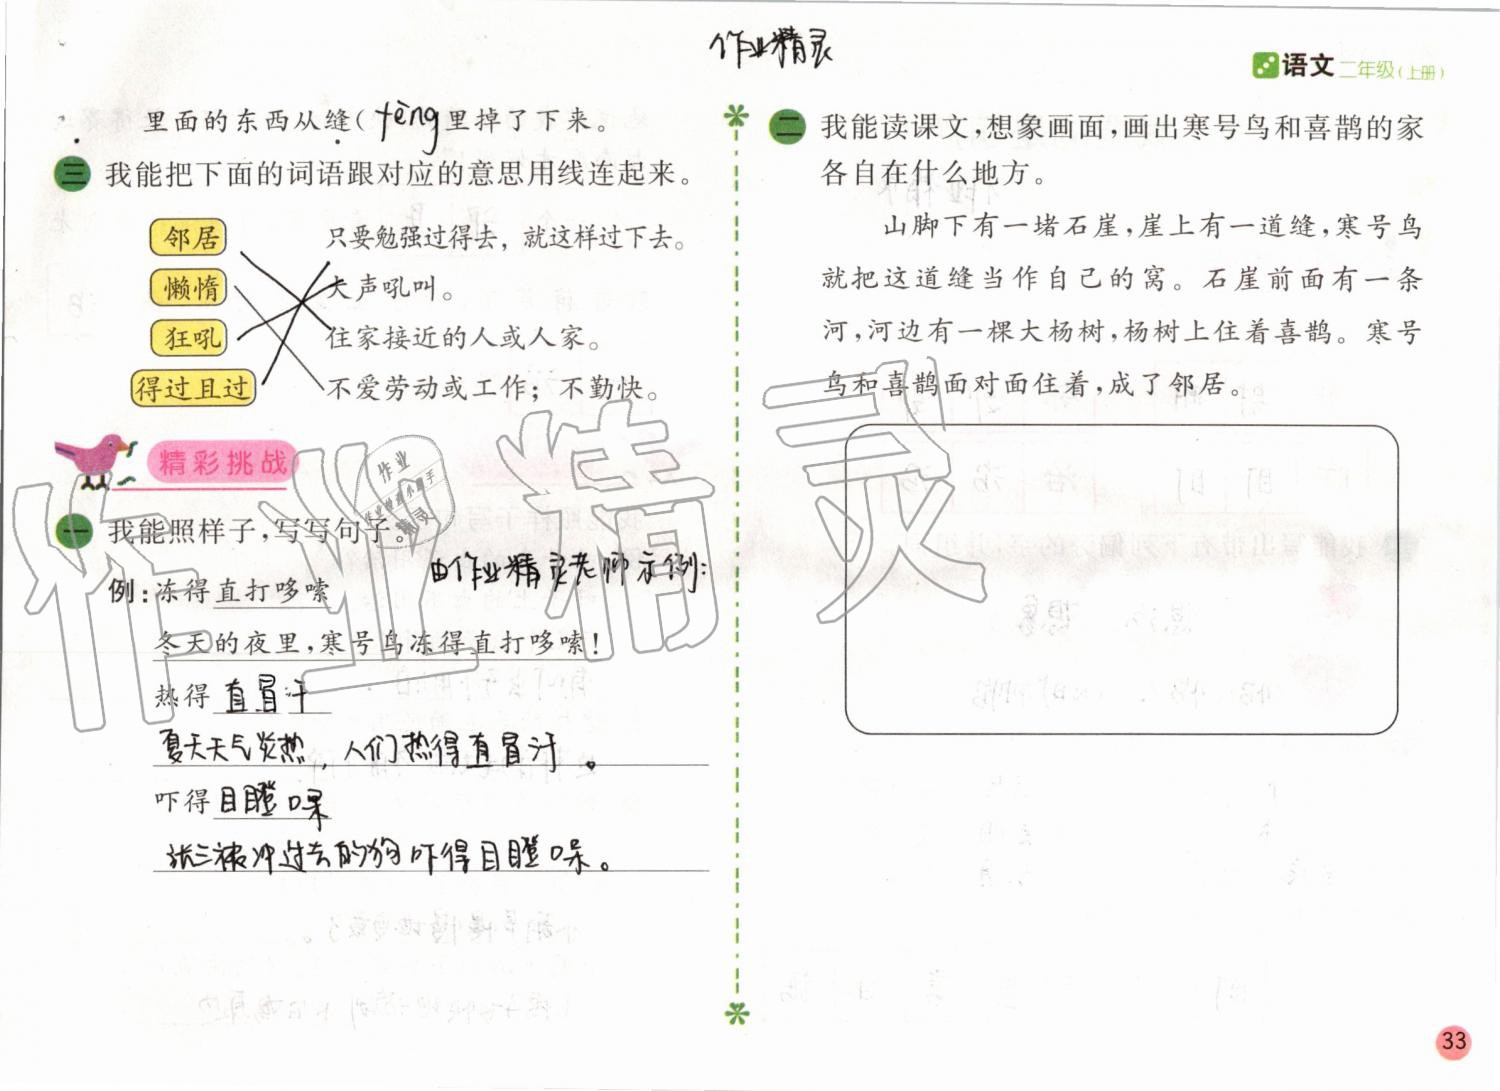 作业精灵
语文 二年级(上册)
里面的东西从缝(fèng)里掉了下来。
三 我能把下面的词语跟对应的意思用线连起来。
邻居 只要勉强过得去，就这样过下去。
懒惰 大声吼叫。
狂吼 住家接近的人或人家。
得过且过 不爱劳动或工作；不勤快。
精彩挑战
一 我能照样子，写写句子。
由作业精灵老师示例：
例：冻得直打哆嗦
冬天的夜里，寒号鸟冻得直打哆嗦！
热得直冒汗
夏天天气炎热，人们热得直冒汗。
吓得目瞪口呆
张三被冲过去的狗吓得目瞪口呆。
二 我能读课文，想象画面，画出寒号鸟和喜鹊的家
各自在什么地方。
山脚下有一堵石崖，崖上有一道缝，寒号鸟
就把这道缝当作自己的窝。石崖前面有一条
河，河边有一棵大杨树，杨树上住着喜鹊。寒号
鸟和喜鹊面对面住着，成了邻居。
作业精灵
33